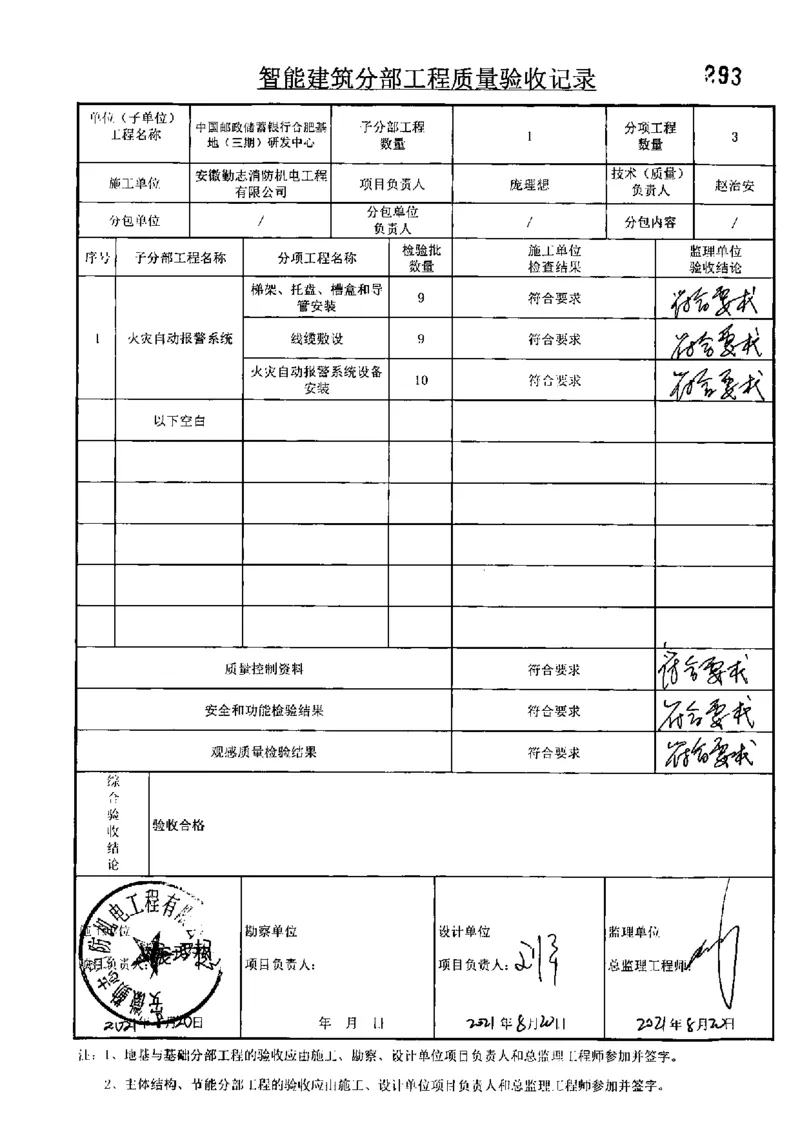 智能建筑分部工程质量验收记录
293
单位（子单位）
工程名称
中国邮政储蓄银行合肥基
地（三期）研发中心
子分部工程
数量
1
分项工程
数量
3
施工单位
安徽勤志消防机电工程
有限公司
项目负责人
庞理想
技术（质量）
负责人
赵治安
分包单位
/
分包单位
负责人
/
分包内容
/
序号
子分部工程名称
分项工程名称
检验批
数量
施工单位
检查结果
监理单位
验收结论
1
火灾自动报警系统
梯架、托盘、槽盒和导
管安装
9
符合要求
符合要求
线缆敷设
9
符合要求
符合要求
火灾自动报警系统设备
安装
10
符合要求
符合要求
以下空白
质量控制资料
符合要求
符合要求
安全和功能检验结果
符合要求
符合要求
观感质量检验结果
符合要求
符合要求
综合验收结论
验收合格
施工单位
项目负责人：
2021年8月20日
勘察单位
项目负责人：
年 月 日
设计单位
项目负责人：
2021年8月20日
监理单位
总监理工程师：
2021年8月20日
注：1、地基与基础分部工程的验收应由施工、勘察、设计单位项目负责人和总监理工程师参加并签字。
2、主体结构、节能分部工程的验收应由施工、设计单位项目负责人和总监理工程师参加并签字。